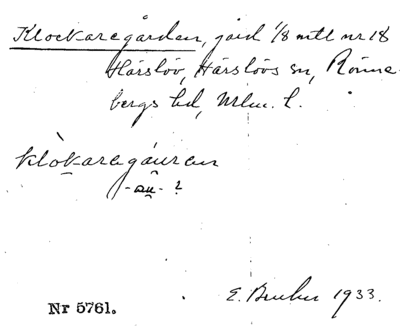 Klockaregården, jord 1/8 mtl nr 18
Härslöv, Härslövs sn, Rönne-
bergs hd, Mlm. l.
klòkaregáuren
-au- ?
E. 1933.
Nr 5761.